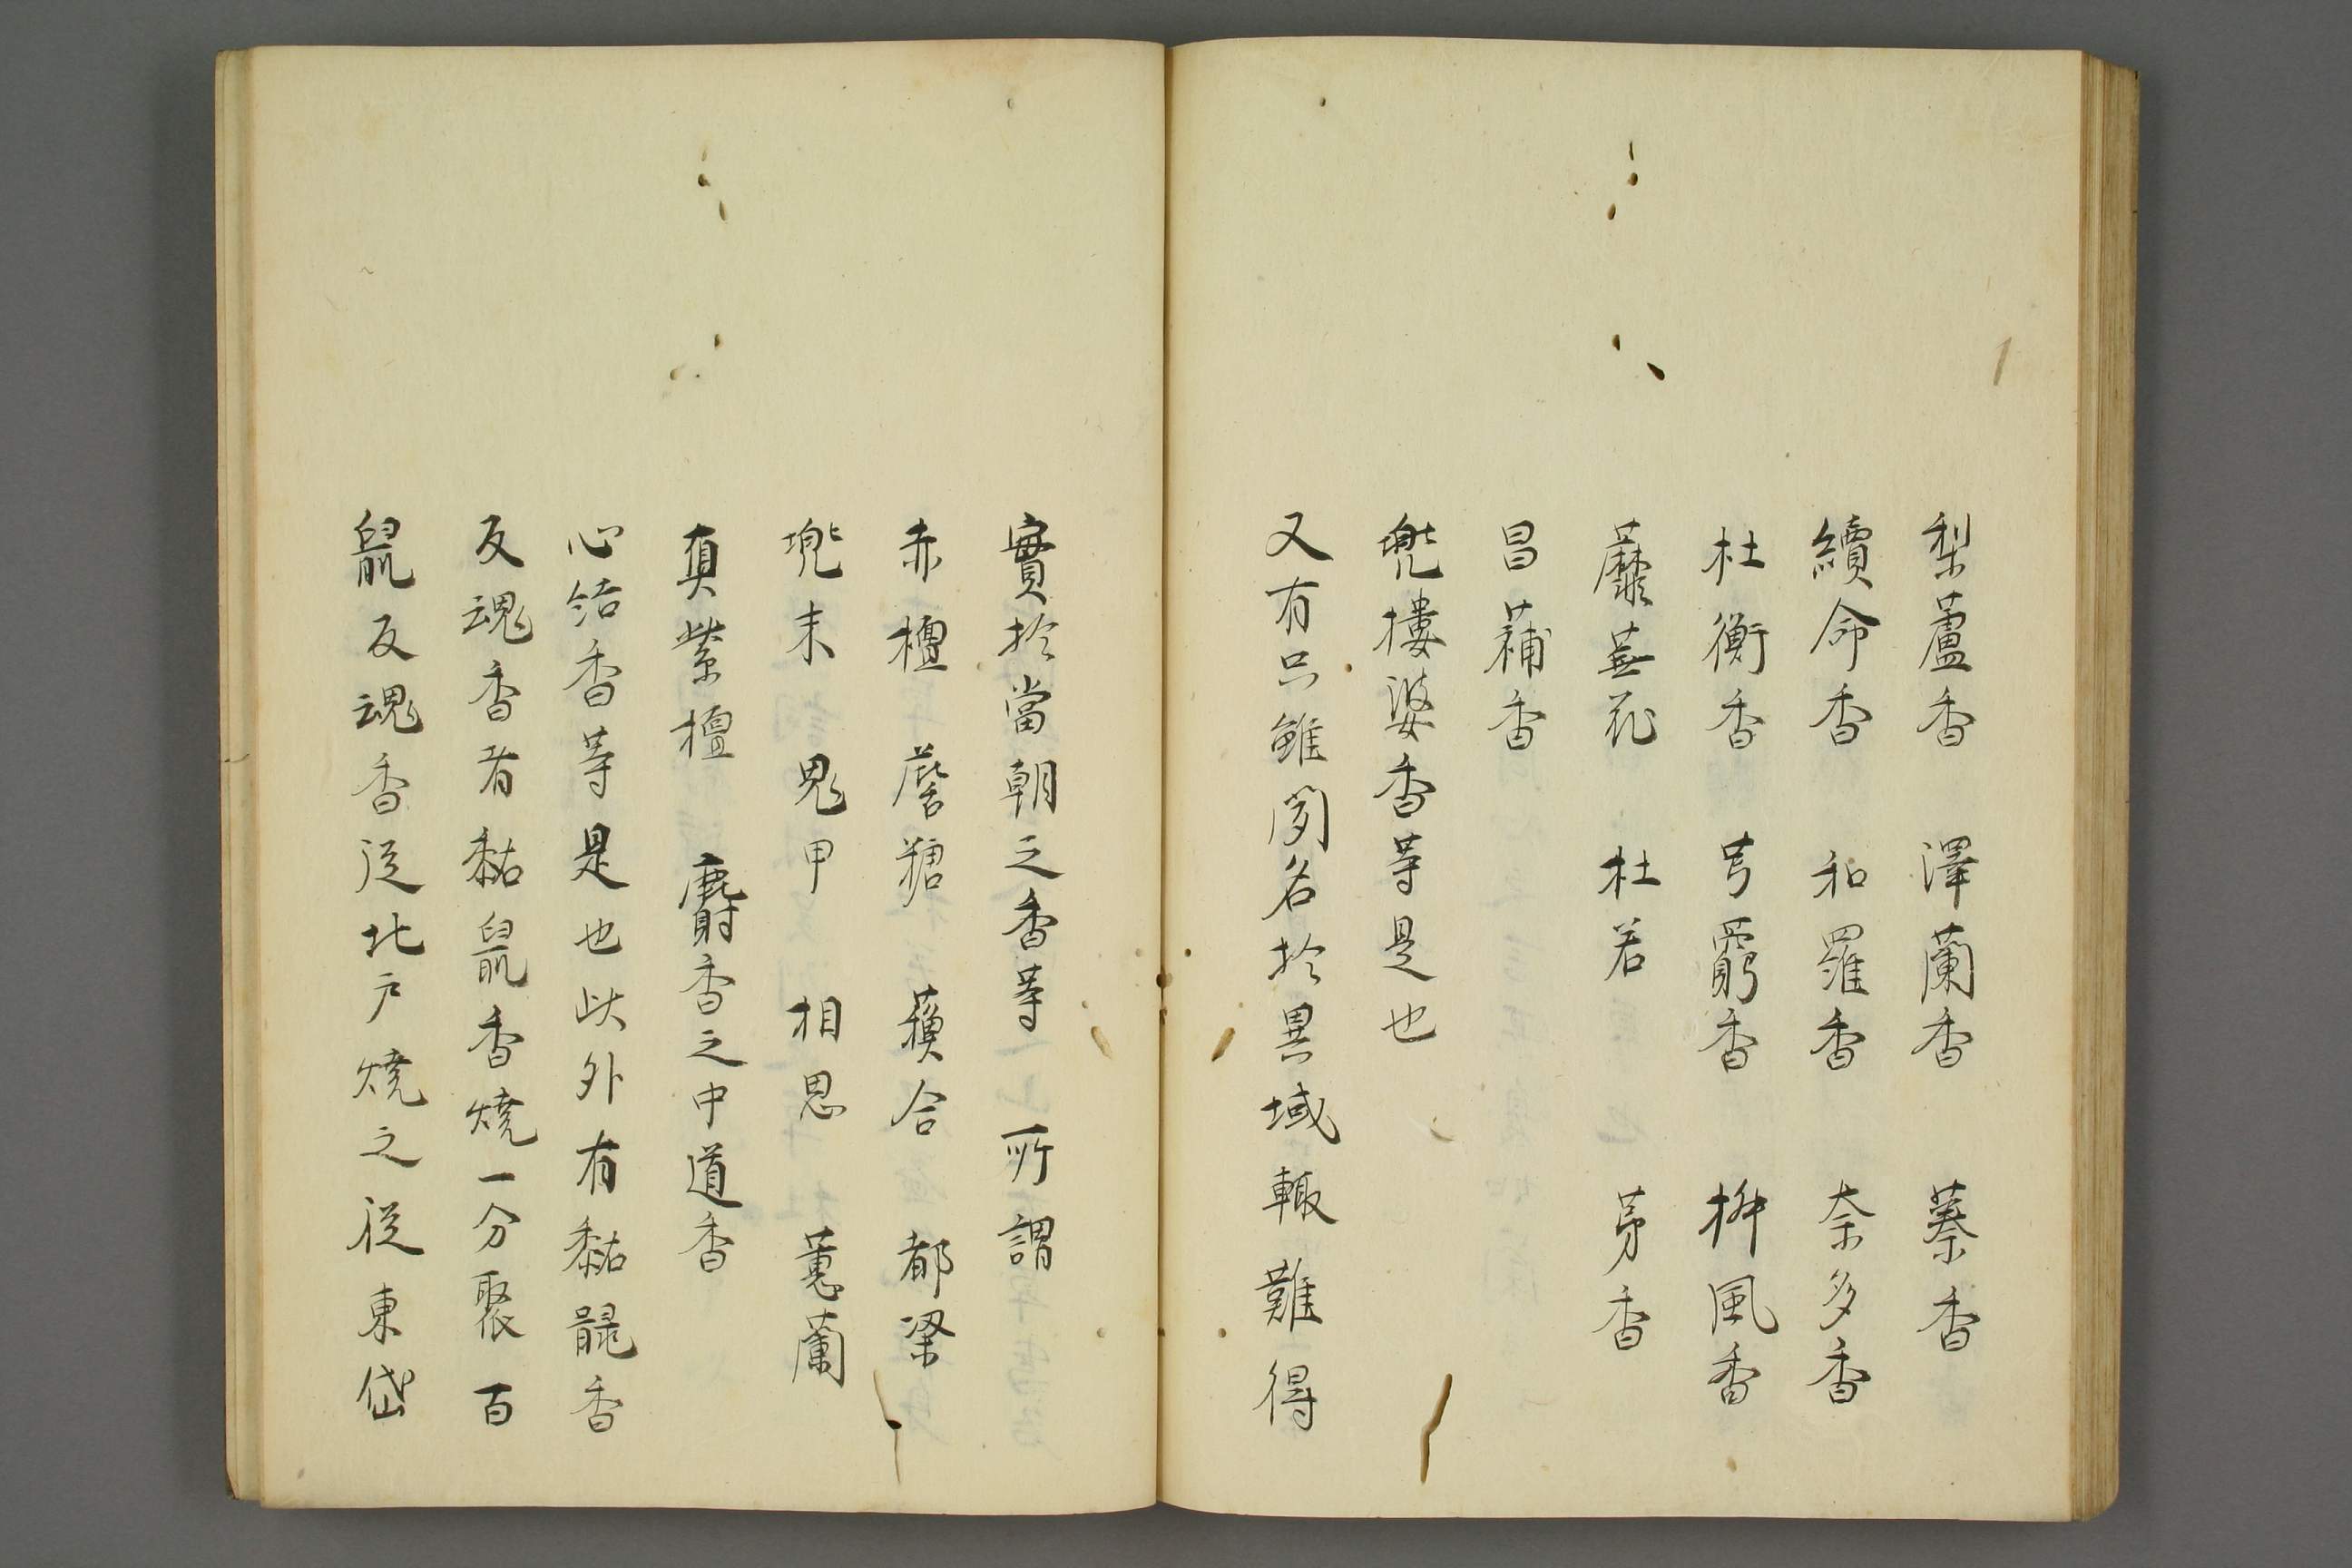 梨蘆香　澤蘭香　蓁香
續命香　和羅香　奈多香
杜衡香　芎藭香　枡風香
蘼蕪花　杜若　茅香
昌蒱香
兜樓婆香等是也
又有只雖聞名於異域輙難得
實於當朝之香等　所謂
赤檀　詹糖　蘓合　都梁
兜末　鬼甲　相思　蕙蘭
真紫檀　麝香之中道香
心結香等是也此外有黏
反魂香者黏鼠香燒一分聚百
鼠反魂香從北戸燒之從東岱